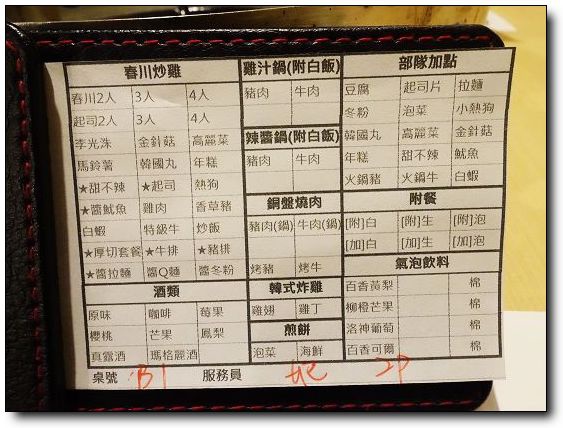 春川炒雞
春川2人 3人 4人
起司2人 3人 4人
李光洙 金針菇 高麗菜
馬鈴薯 韓國丸 年糕
★甜不辣 ★起司 熱狗
★醬魷魚 雞肉 香草豬
白蝦 特級牛 炒飯
★厚切套餐 ★牛排 ★豬排
★醬拉麵 醬Q麵 醬冬粉
酒類
原味 咖啡 莓果
櫻桃 芒果 鳳梨
真露酒 瑪格麗酒
雞汁鍋(附白飯)
豬肉 牛肉
辣醬鍋(附白飯)
豬肉 牛肉
銅盤燒肉
豬肉(鍋) 牛肉(鍋)
烤豬 烤牛
韓式炸雞
雞翅 雞丁
煎餅
泡菜 海鮮
部隊加點
豆腐 起司片 拉麵
冬粉 泡菜 小熱狗
韓國丸 高麗菜 金針菇
年糕 甜不辣 魷魚
火鍋豬 火鍋牛 白蝦
附餐
[附]白 [附]生 [附]泡
[加]白 [加]生 [加]泡
氣泡飲料
百香黃梨 棉
柳橙芒果 棉
洛神葡萄 棉
百香可爾 棉
桌號 B1 服務員 2P